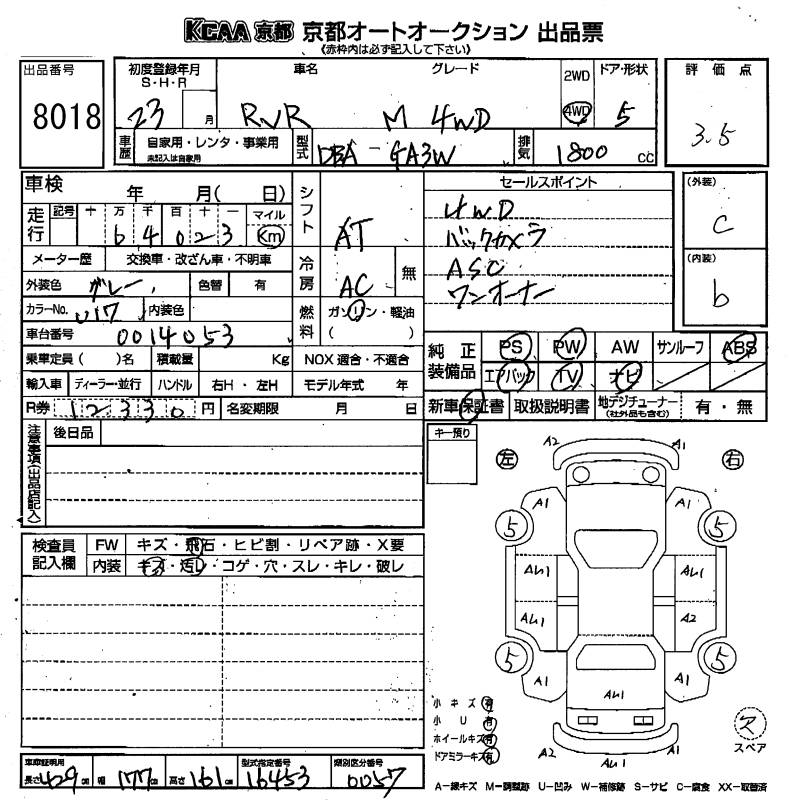 KCAA 京都 京都オートオークション 出品票
《赤枠内は必ず記入して下さい》
出品番号 8018
初度登録年月 S・H・R 23 月
車名 RVR
グレード M 4WD
2WD 4WD
ドア・形状 5
評価点 3.5
車歴 自家用・レンタ・事業用 未記入は自家用
型式 DBA-GA3W
排気 1800 CC
車検 年 月( 日)
シフト AT
セールスポイント
4WD
バックカメラ
ASC
ワンオーナー
(外装) C
(内装) b
走行 記号 十 万 千 百 十 一 マイル
6 4 0 2 3 Km
メーター歴 交換車・改ざん車・不明車
冷房 AC 無
外装色 グレー 色替 有
カラーNo. U17 内装色
燃料 ガソリン・軽油 ( )
車台番号 0014053
乗車定員( )名 積載量 Kg NOX 適合・不適合
輸入車 ディーラー・並行 ハンドル 右H・左H モデル年式 年
R券 12330 円 名変期限 月 日
純正装備品 PS PW AW サンルーフ ABS
エアバック TV ナビ
新車保証書 取扱説明書 地デジチューナー (社外品も含む) 有・無
注意事項(出品店記入) 後日品
キー預り
左 右
A2 A1
A1 A1
5 5
AU1 AU1
AU1 A2
5 5
A1 A1
AU1
A2 AU1 A1
検査員記入欄 FW キズ・飛石・ヒビ割・リペア跡・X要
内装 キズ・汚レ・コゲ・穴・スレ・キレ・破レ
小キズ 有
小U 有
ホイールキズ 有
ドアミラーキズ 有
スペア
車庫証明用 長さ 429 cm 幅 177 cm 高さ 161 cm
型式指定番号 16453
類別区分番号 0057
A-線キズ M-調整跡 U-凹み W-補修跡 S-サビ C-腐食 XX-取替済